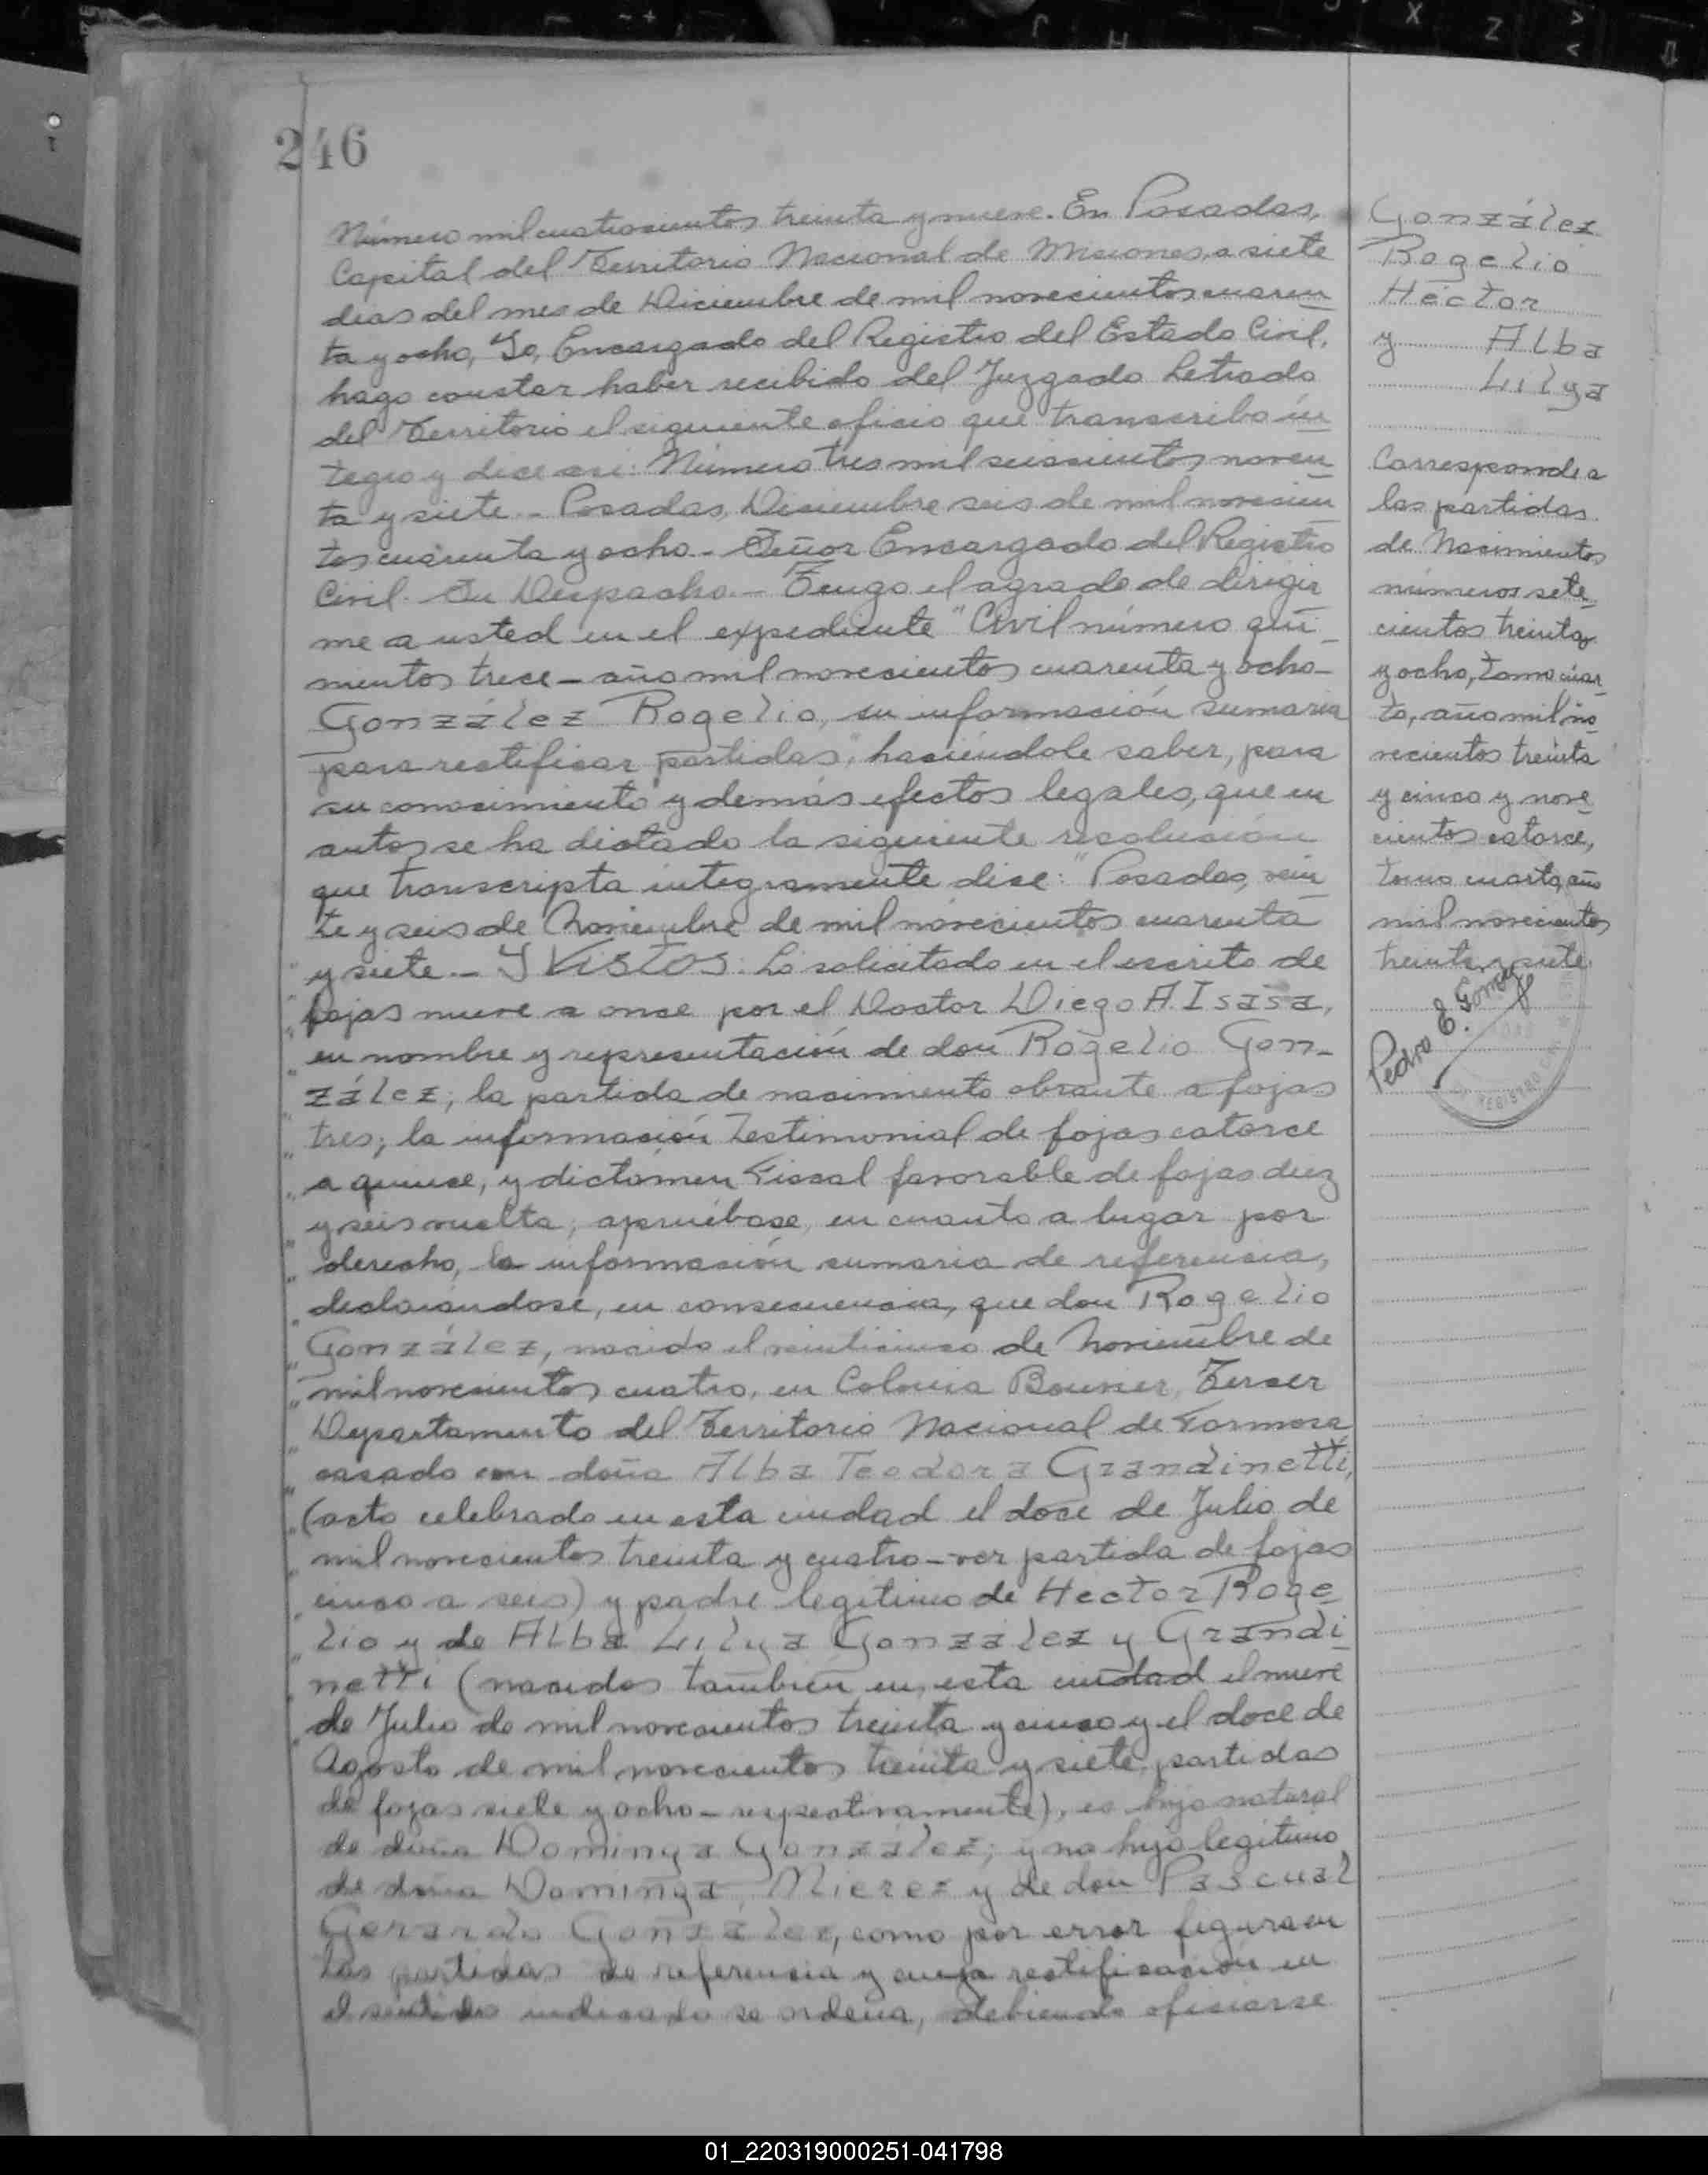 246
Número mil cuatrocientos treinta y nueve. En Posadas,
Capital del Territorio Nacional de Misiones, a siete
dias del mes de Diciembre de mil novecientos cuaren_
ta y ocho, Yo, Encargado del Registro del Estado Civil,
hago constar haber recibido del Juzgado Letrado
del Territorio el siguiente oficio que transcribo ín_
tegro y dice así: Número tres mil seiscientos noven_
ta y siete.- Posadas, Diciembre seis de mil novecien_
tos cuarenta y ocho.- Señor Encargado del Registro
Civil. Su Despacho.- Tengo el agrado de dirigir_
me a usted en el expediente "Civil número qui_
nientos trece - año mil novecientos cuarenta y ocho-
González Rogelio, su información sumaria
para rectificar partidas", haciéndole saber, para
su conocimiento y demás efectos legales, que en
autos se ha dictado la siguiente resolución
que transcripta íntegramente dice: "Posadas, vein_
te y seis de Noviembre de mil novecientos cuarenta
" y siete.- Y VISTOS: Lo solicitado en el escrito de
" fojas nueve a once por el Doctor Diego A. Isasa,
" en nombre y representación de don Rogelio Gon-
" zález; la partida de nacimiento obrante a fojas
" tres; la información testimonial de fojas catorce
" a quince, y dictámen Fiscal favorable de fojas diez
" y seis vuelta; apruébase, en cuanto a lugar por
" derecho, la información sumaria de referencia,
" declarándose, en consecuencia, que don Rogelio
" González, nacido el veinticinco de Noviembre de
" mil novecientos cuatro, en Colonia Bouvier, Tercer
" Departamento del Territorio Nacional de Formosa
" casado con doña Alba Teodora Grandinetti,
" (acto celebrado en esta ciudad el doce de Julio de
" mil novecientos treinta y cuatro - ver partida de fojas
" cinco a seis) y padre legítimo de Hector Roge_
" lio y de Alba Lilya González y Grandi_
" netti (nacidos también en esta ciudad el nueve
" de Julio de mil novecientos treinta y cinco y el doce de
Agosto de mil novecientos treinta y siete, partidas
de fojas siete y ocho - respectivamente), es hijo natural
de doña Dominga González; y no hijo legítimo
de doña Dominga Mierez y de don Pascual
Gerardo González, como por error figura en
las partidas de referencia y cuya rectificación en
el sentido indicado se ordena, debiendo oficiarse
González
Rogelio
Héctor
y Alba
Lilya
Corresponde a
las partidas
de Nacimientos
números sete_
cientos treinta
y ocho, tomo cuar_
to, año mil no
vecientos treinta
y cinco y nove_
cientos catorce,
tomo cuarto, año
mil novecientos
treinta y siete.
Pedro E. Gomez
REGISTRO CIVIL
01_220319000251-041798